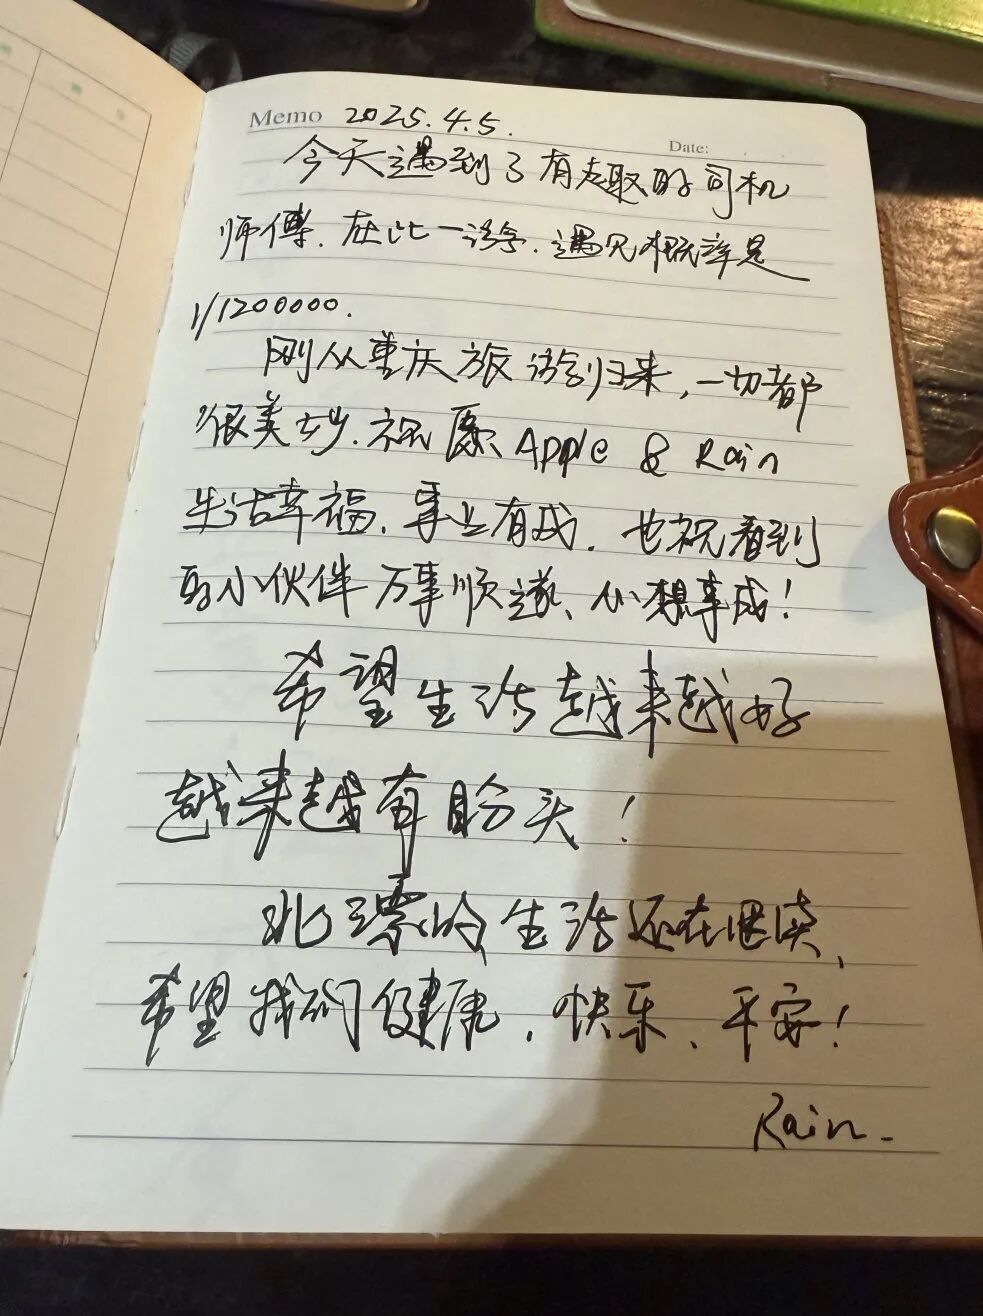 Memo 2025.4.5.
Date:
今天遇到了有趣的司机
师傅.在此一游.遇见概率是
1/1200000.
刚从重庆旅游归来,一切都
很美妙.祝愿Apple & Rain
生活幸福.事业有成.也祝看到
的小伙伴万事顺遂、心想事成!
希望生活越来越好
越来越有盼头!
北漂的生活还在继续、
希望我们健康.快乐、平安!
Rain.